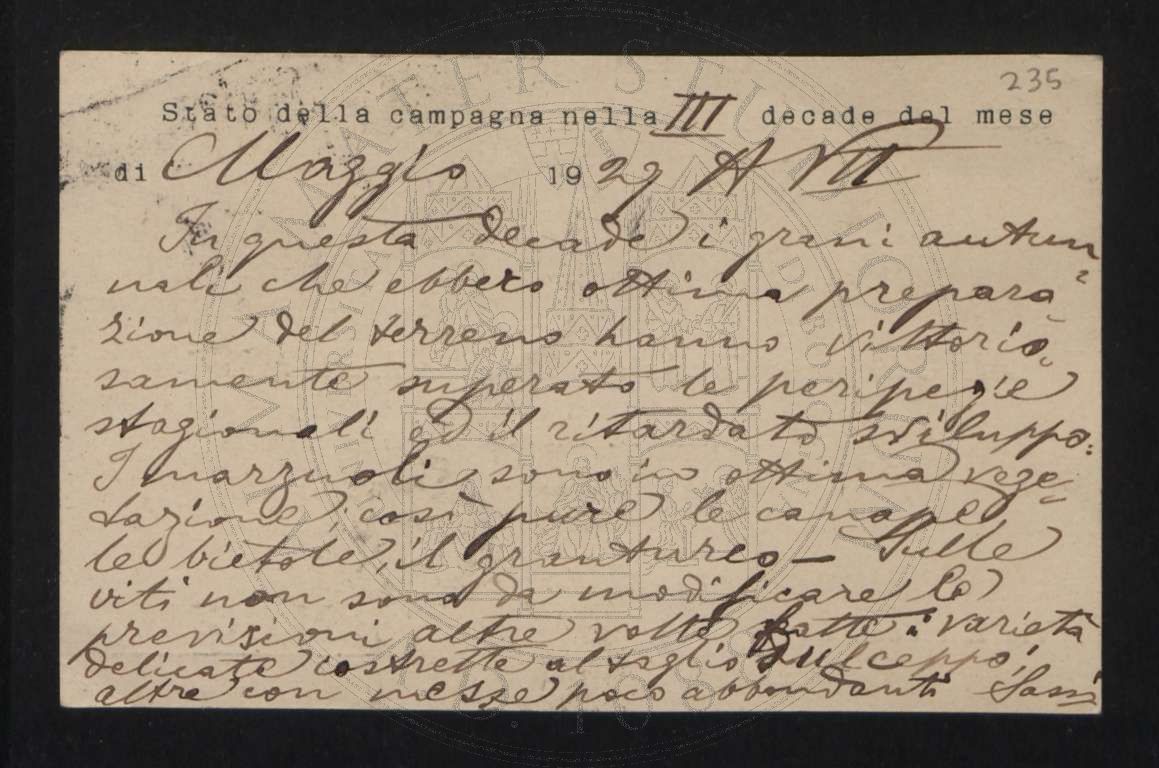 235
Stato della campagna nella III decade del mese
di Maggio 1929 A VII
In questa decade i grani autun=
nali che ebbero ottima prepara=
zione del terreno hanno vittorio=
samente superato le peripezie
stagionali ed il ritardato sviluppo:
I marzuoli sono in ottima vege=
tazione; così pure le canape
le bietole, il granturco – Sulle
viti non sono da modificare le
previsioni altre volte fatte: varietà
delicate costrette al taglio sul ceppo;
altre con messe poco abbondanti Sassi
ALMA MATER STUDIORUM